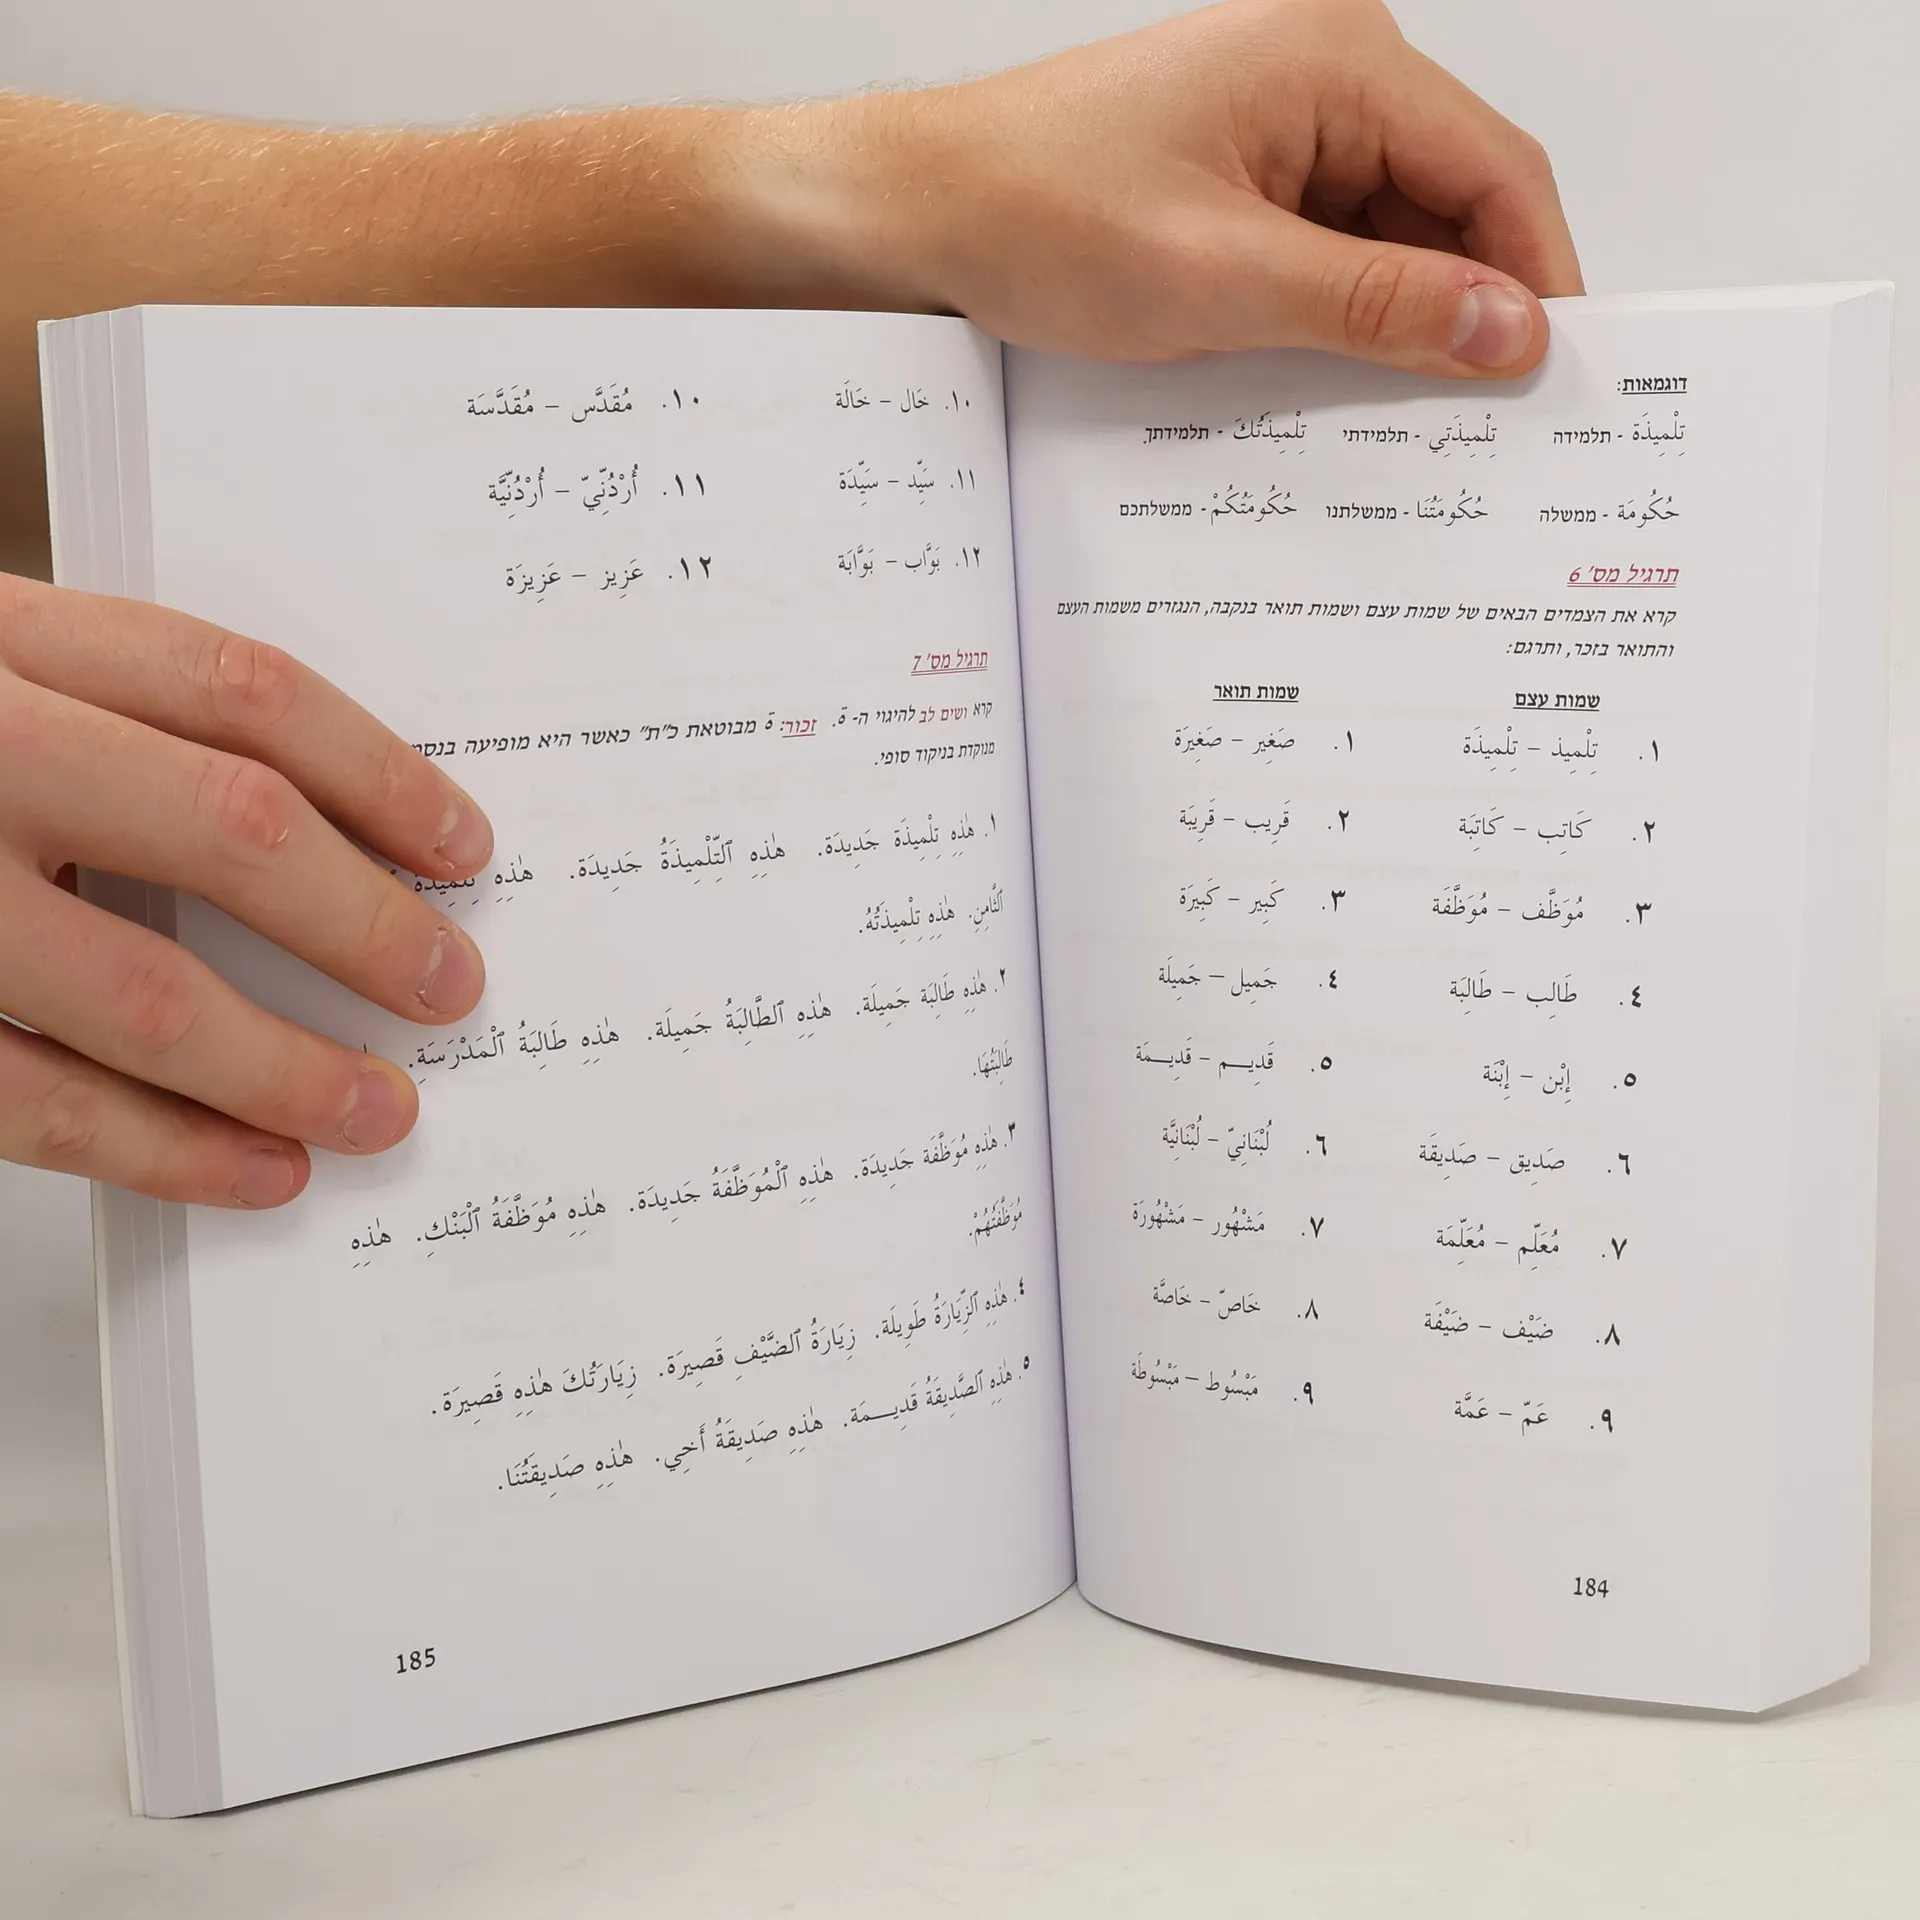 דוגמאות:
تِلْمِيذَة - תלמידה تِلْمِيذَتِي - תלמידתי تِلْمِيذَتُكَ - תלמידתך.
حُكُومَة - ממשלה حُكُومَتُنَا - ממשלתנו حُكُومَتُكُمْ - ממשלתכם
תרגיל מס' 6
קרא את הצמדים הבאים של שמות עצם ושמות תואר בנקבה, הנגזרים משמות העצם
והתואר בזכר, ותרגם:
שמות עצם שמות תואר
١. تِلْمِيذ – تِلْمِيذَة ١. صَغِير – صَغِيرَة
٢. كَاتِب – كَاتِبَة ٢. قَرِيب – قَرِيبَة
٣. مُوَظَّف – مُوَظَّفَة ٣. كَبِير – كَبِيرَة
٤. طَالِب – طَالِبَة ٤. جَمِيل – جَمِيلَة
٥. إِبْن – إِبْنَة ٥. قَدِيـــم – قَدِيـــمَة
٦. صَدِيق – صَدِيقَة ٦. لُبْنَانِيّ – لُبْنَانِيَّة
٧. مُعَلِّم – مُعَلِّمَة ٧. مَشْهُور – مَشْهُورَة
٨. ضَيْف – ضَيْفَة ٨. خَاصّ – خَاصَّة
٩. عَمّ – عَمَّة ٩. مَبْسُوط – مَبْسُوطَة
184
١٠. خَال – خَالَة ١٠. مُقَدَّس – مُقَدَّسَة
١١. سَيِّد – سَيِّدَة ١١. أُرْدُنِّيّ – أُرْدُنِّيَّة
١٢. بَوَّاب – بَوَّابَة ١٢. عَزِيز – عَزِيزَة
תרגיל מס' 7
קרא ושים לב להיגוי ה- ة. זכור: ة מבוטאת כ"ת" כאשר היא מופיעה
מנוקדת בניקוד סופי.
١. هٰذِهِ تِلْمِيذَة جَدِيدَة. هٰذِهِ ٱلتِّلْمِيذَةُ جَدِيدَة. هٰذِهِ
ٱلثَّامِنِ. هٰذِهِ تِلْمِيذَتُهُ.
٢. هٰذِهِ طَالِبَة جَمِيلَة. هٰذِهِ ٱلطَّالِبَةُ جَمِيلَة. هٰذِهِ طَالِبَةُ ٱلْمَدْرَسَةِ.
طَالِبَتُهَا.
٣. هٰذِهِ مُوَظَّفَة جَدِيدَة. هٰذِهِ ٱلْمُوَظَّفَةُ جَدِيدَة. هٰذِهِ مُوَظَّفَةُ ٱلْبَنْكِ. هٰذِهِ
مُوَظَّفَتُهُمْ.
٤. هٰذِهِ ٱلزِّيَارَةُ طَوِيلَة. زِيَارَةُ ٱلضَّيْفِ قَصِيرَة. زِيَارَتُكَ هٰذِهِ قَصِيرَة.
٥. هٰذِهِ ٱلصَّدِيقَةُ قَدِيـــمَة. هٰذِهِ صَدِيقَةُ أَخِي. هٰذِهِ صَدِيقَتُنَا.
185